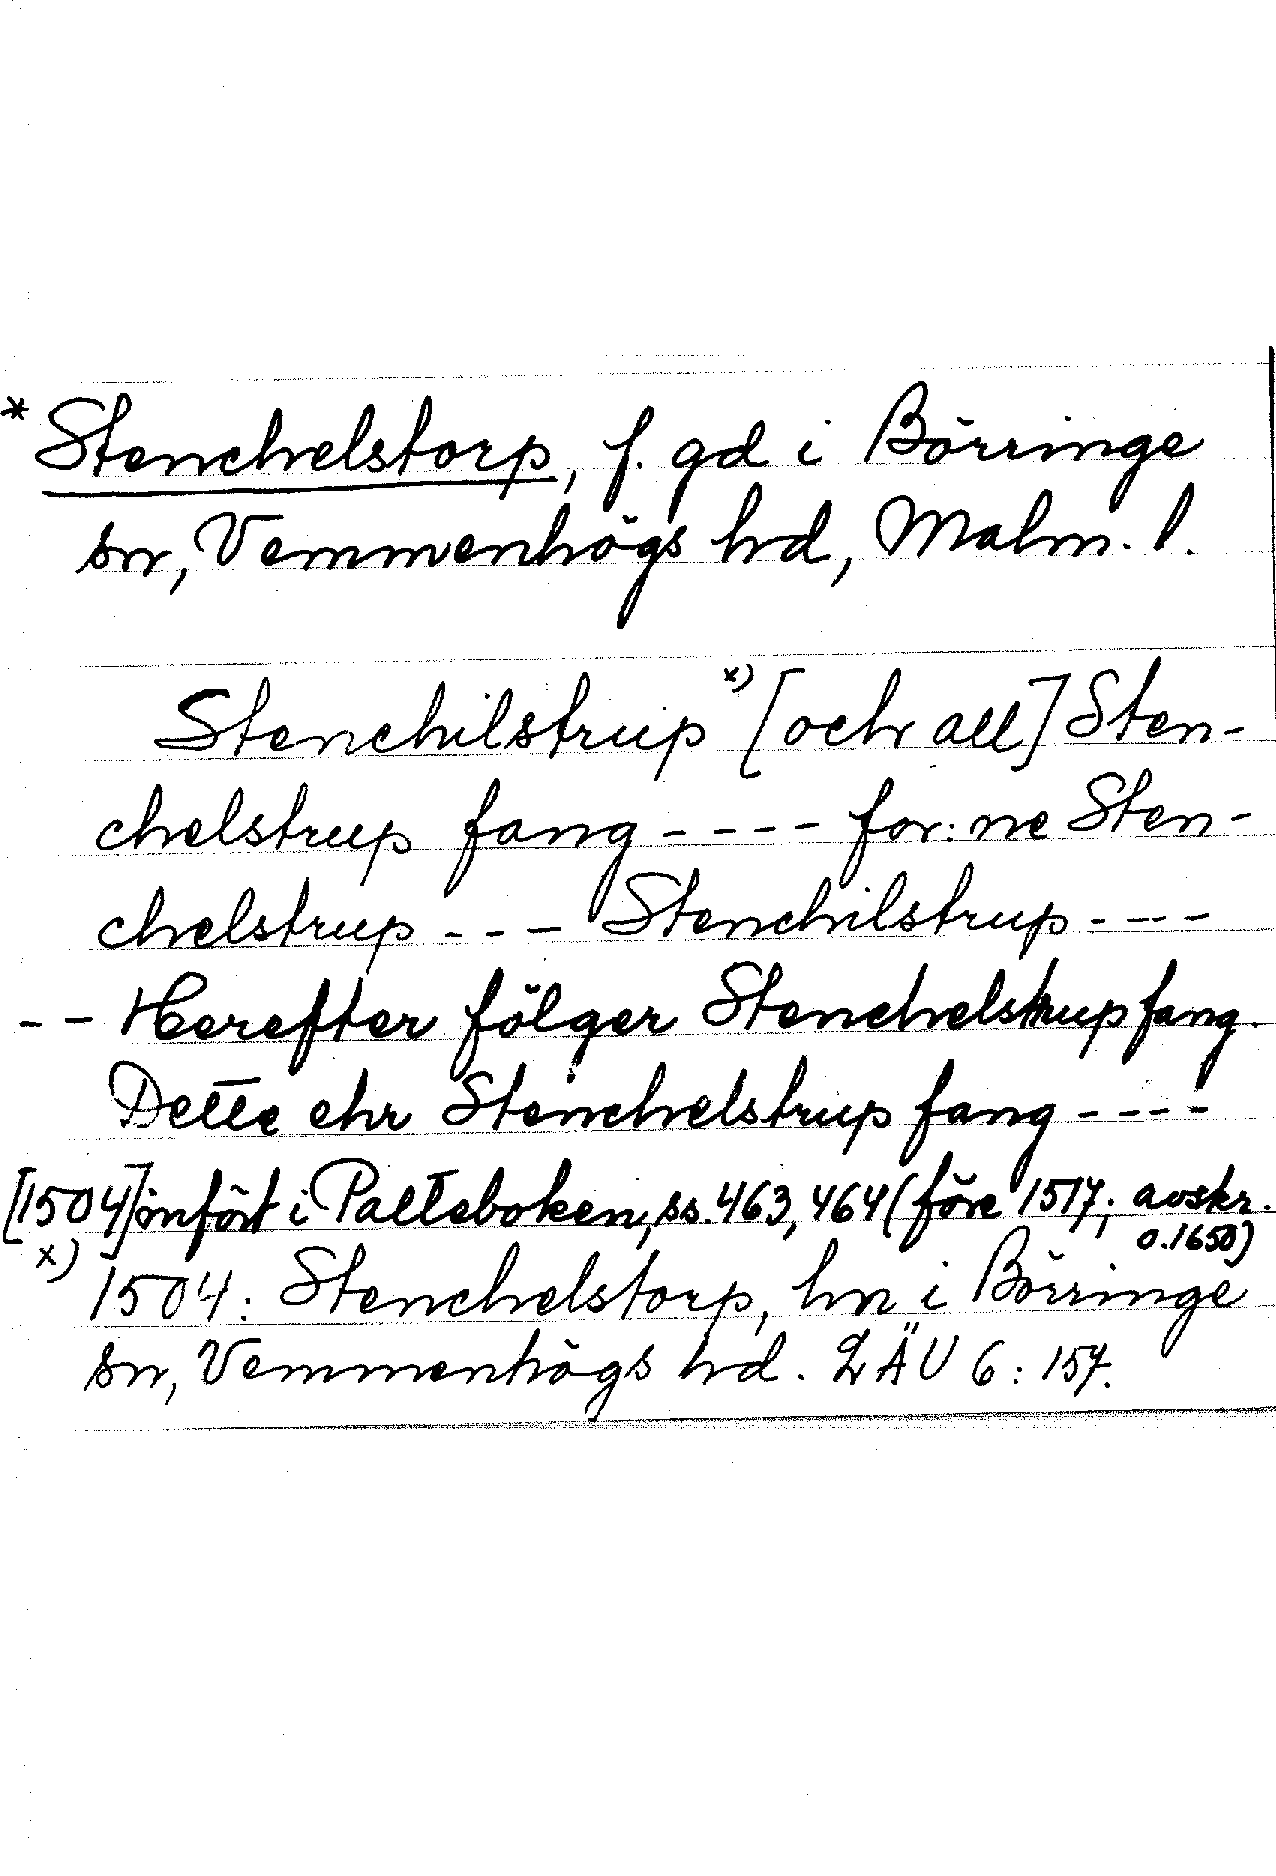 * Stenchelstorp, f. gd i Börringe
sn, Vemmenhögs hd, Malm. l.
Stenchilstrup x) [och all] Sten-
chelstrup fang ---- for:ne Sten-
chelstrup --- Stenchilstrup ----
-- Herefter fölger Stenchelstrup fang.
Dette ehr Stenchelstrup fang ----
[1504] infört i Palteboken, ss. 463, 464 (före 1517; avskr.
o. 1650)
x) 1504: Stenchelstorp, hn i Börringe
sn, Vemmenhögs hd. LÄU 6: 157.